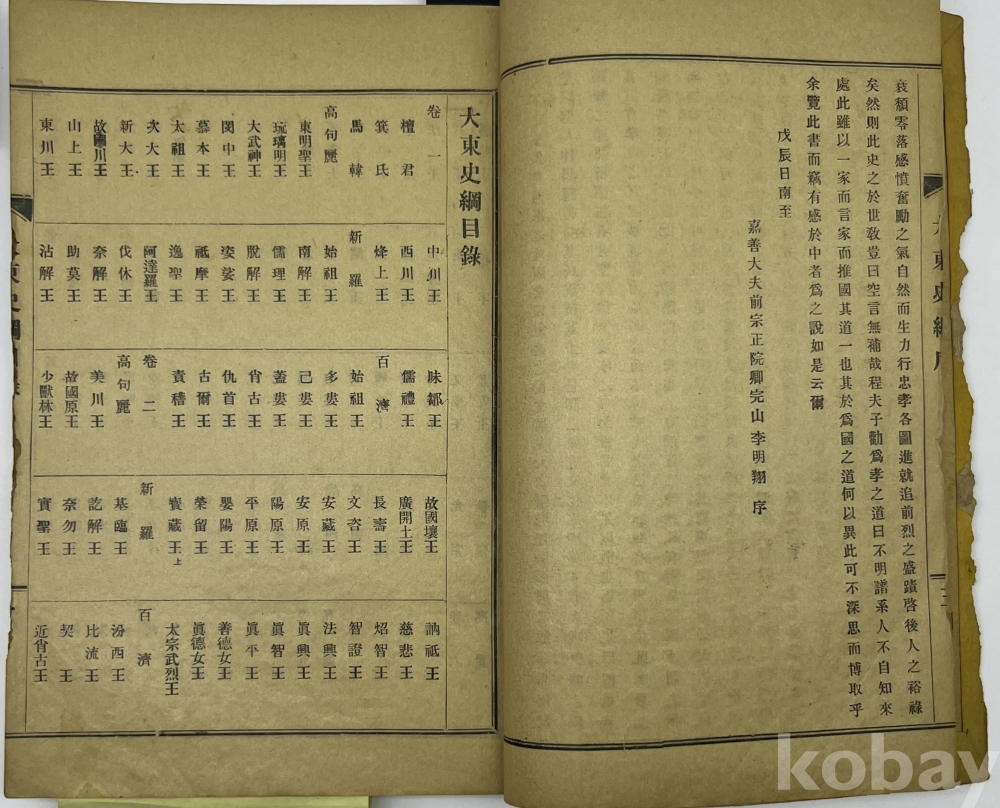 大東史綱序
三
衰頹零落感憤奮勵之氣自然而生力行忠孝各圖進就追前烈之盛蹟啓後人之裕祿
矣然則此史之於世敎豈曰空言無補哉程夫子勸爲孝之道曰不明譜系人不自知來
處此雖以一家而言家而推國其道一也其於爲國之道何以異此可不深思而博取乎
余覽此書而竊有感於中者爲之說如是云爾
戊辰日南至
嘉善大夫前宗正院卿完山李明翔 序
大東史綱目錄
卷一
檀君
箕氏
馬韓
高句麗
東明聖王
琉璃明王
大武神王
閔中王
慕本王
太祖王
次大王
新大王
故國川王
山上王
東川王
中川王
西川王
烽上王
新羅
始祖王
南解王
儒理王
脫解王
婆娑王
祗摩王
逸聖王
阿達羅王
伐休王
奈解王
助莫王
沾解王
味鄒王
儒禮王
百濟
始祖王
多婁王
己婁王
蓋婁王
肖古王
仇首王
古爾王
責稽王
卷二
高句麗
美川王
故國原王
少獸林王
故國壤王
廣開土王
長壽王
文咨王
安藏王
安原王
陽原王
平原王
嬰陽王
榮留王
寶藏王上
新羅
基臨王
訖解王
奈勿王
實聖王
訥祇王
慈悲王
炤智王
智證王
法興王
眞興王
眞智王
眞平王
善德女王
眞德女王
太宗武烈王
百濟
汾西王
比流王
契王
近肖古王
大東史綱目錄
kobay